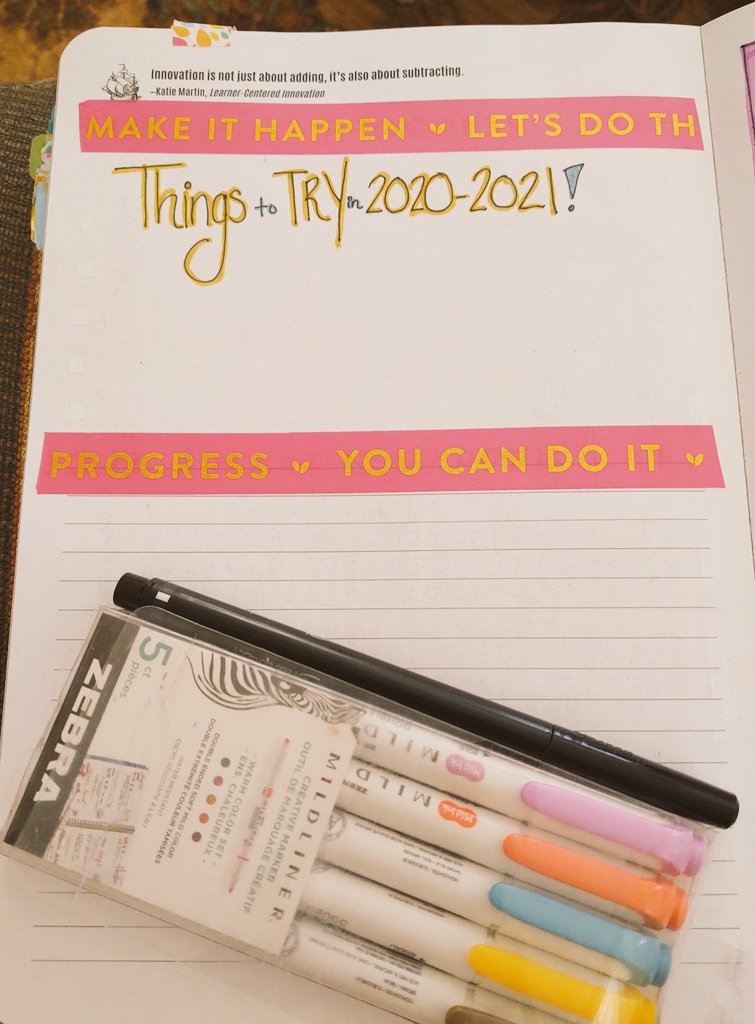 Innovation is not just about adding, it's also about subtracting.
—Katie Martin, Learner-Centered Innovation
MAKE IT HAPPEN LET'S DO TH
Things to TRY in 2020-2021!
PROGRESS YOU CAN DO IT
5 ct
pièces
ZEBRA
MILDLINER
CREATIVE MARKER
OUTIL DE MARQUAGE CRÉATIF
- WARM COLOR SET -
- ENS. CHALEUREUX -
DOUBLE ENDED SOFT MILD COLOR
DOUBLE EXTRÉMITÉ COULEUR TAMISÉES
WATER RESISTANT
Mild Ink
MILD
Mild Ink
MILD
ZEBRA